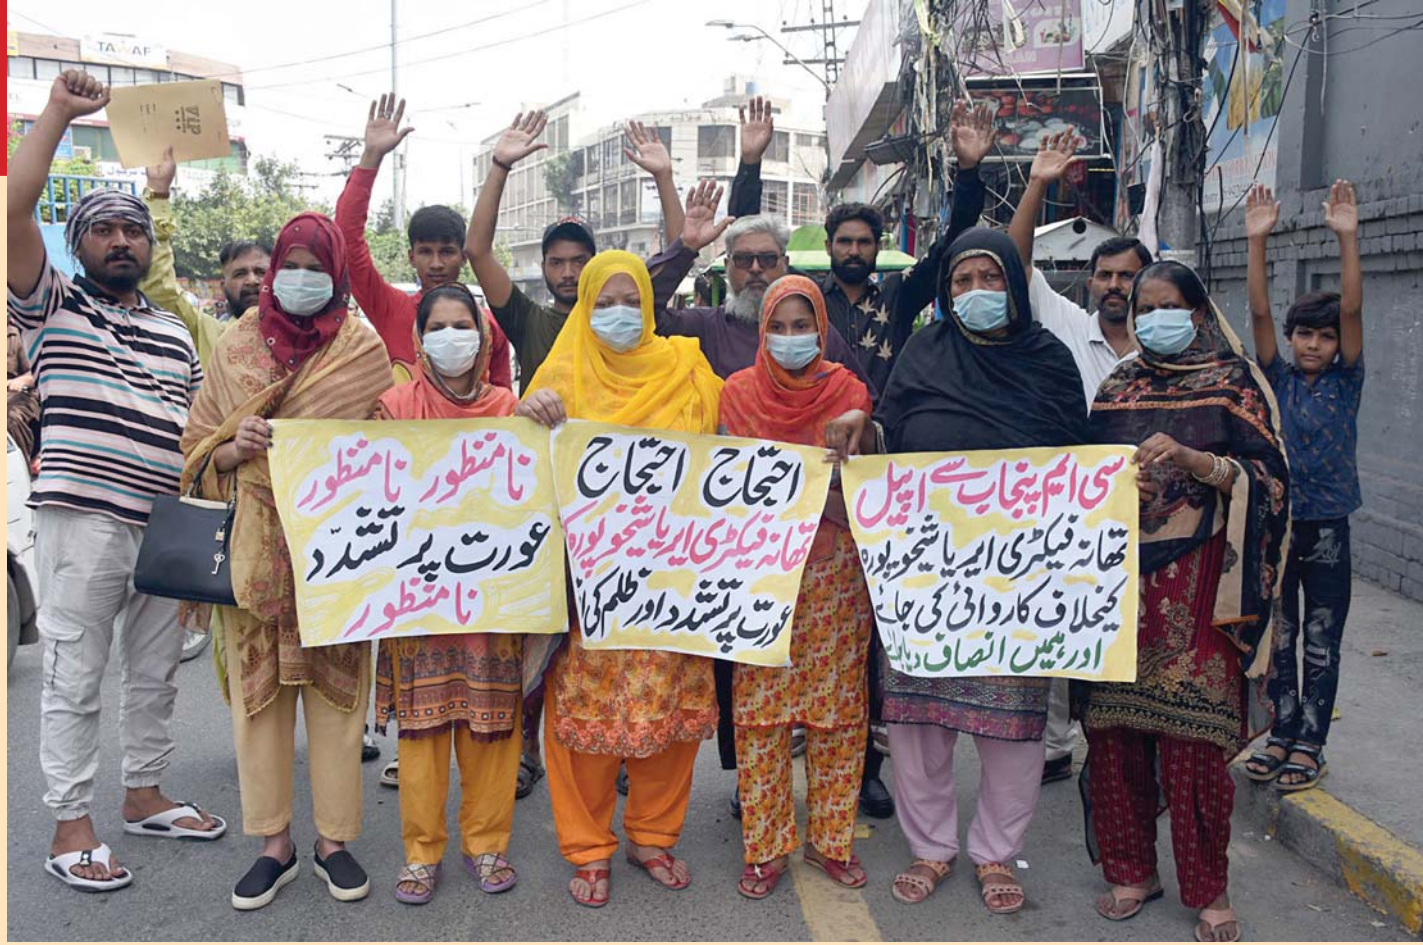 TAWAF
VIP
نامنظور نامنظور
عورت پر تشدّد
نامنظور
احتجاج احتجاج
تھانہ فیکٹری ایریا شیخوپورہ
عورت پر تشدد اور ظلم کی
سی ایم پنجاب سے اپیل
تھانہ فیکٹری ایریا شیخوپورہ
کیخلاف کاروائی کی جائے
اور ہمیں انصاف دیا